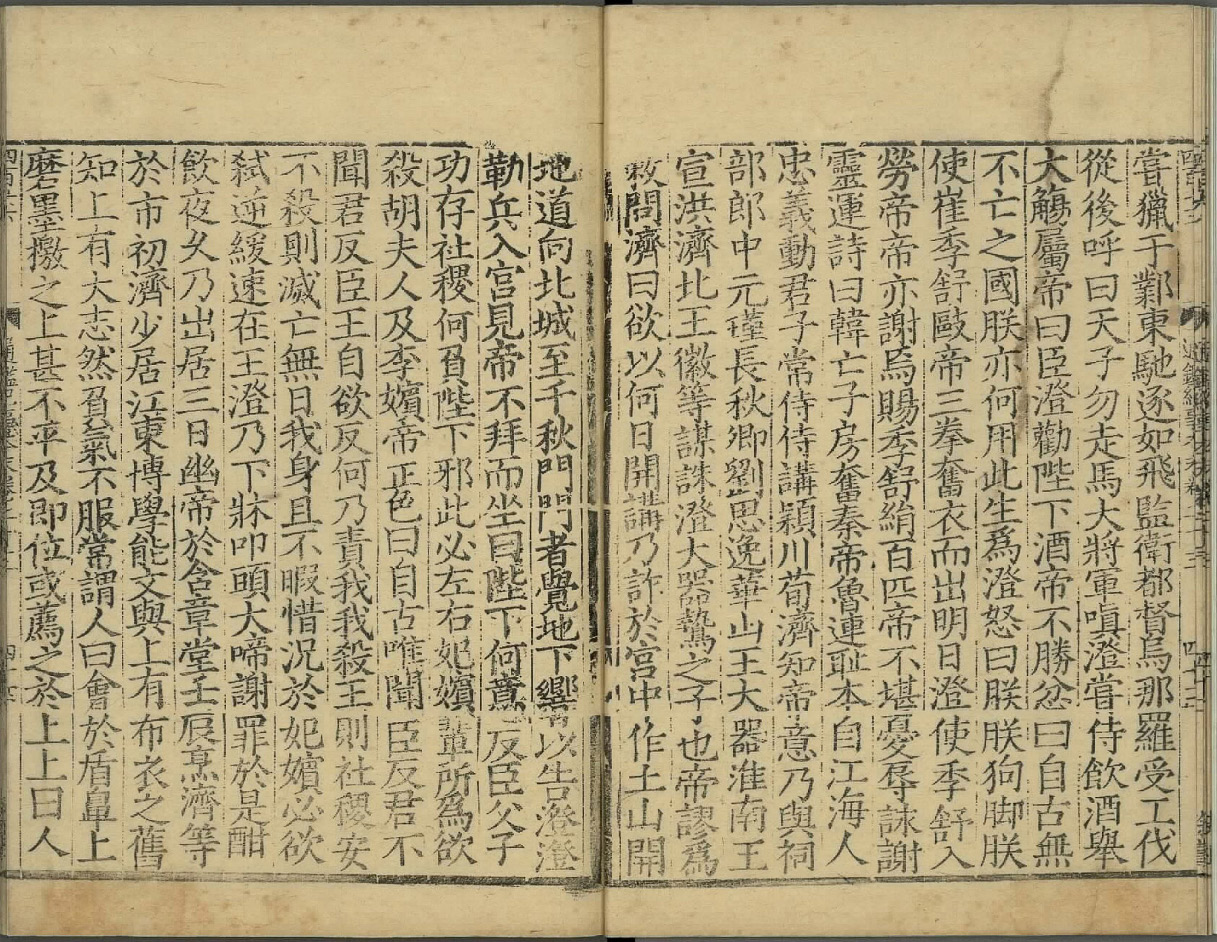 嘗獵于鄴東馳逐如飛監衛都督烏那羅受工伐
從後呼曰天子勿走馬大將軍嗔澄嘗侍飲酒舉
大觴屬帝曰臣澄勸陛下酒帝不勝忿曰自古無
不亡之國朕亦何用此生爲澄怒曰朕朕狗脚朕
使崔季舒毆帝三拳奮衣而出明日澄使季舒入
勞帝帝亦謝焉賜季舒絹百匹帝不堪憂辱詠謝
靈運詩曰韓亡子房奮秦帝魯連耻本自江海人
忠義動君子常侍侍講潁川荀濟知帝意乃與祠
部郎中元瑾長秋卿劉思逸華山王大器淮南王
宣洪濟北王徽等謀誅澄大器鷙之子也帝謬爲
敕問濟曰欲以何日開講乃詐於宮中作土山開
地道向北城至千秋門門者覺地下響以告澄澄
勒兵入宮見帝不拜而坐曰陛下何意反臣父子
功存社稷何負陛下邪此必左右妃嬪輩所爲欲
殺胡夫人及李嬪帝正色曰自古唯聞臣反君不
聞君反臣王自欲反何乃責我我殺王則社稷安
不殺則滅亡無日我身且不暇惜況於妃嬪必欲
弑逆緩速在王澄乃下牀叩頭大啼謝罪於是酣
飲夜乆乃出居三日幽帝於含章堂壬辰烹濟等
於市初濟少居江東博學能文與上有布衣之舊
知上有大志然負氣不服常謂人曰會於盾鼻上
磨墨檄之上甚不平及即位或薦之於上上曰人